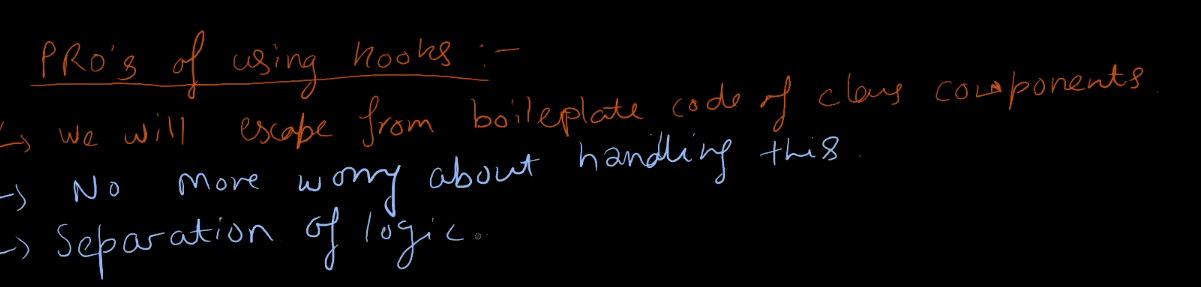 PRO's of using hooks :-
→ we will escape from boileplate code of class components.
→ No more worry about handling this.
→ Separation of logic.